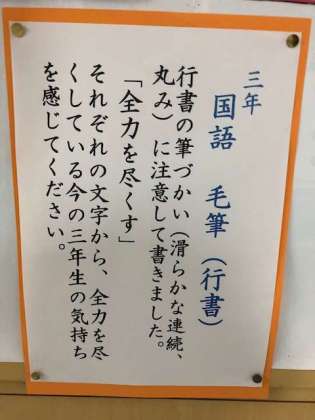 三年
国語　毛筆（行書）
行書の筆づかい（滑らかな連続、
丸み）に注意して書きました。
「全力を尽くす」
それぞれの文字から、全力を尽
くしている今の三年生の気持ち
を感じてください。